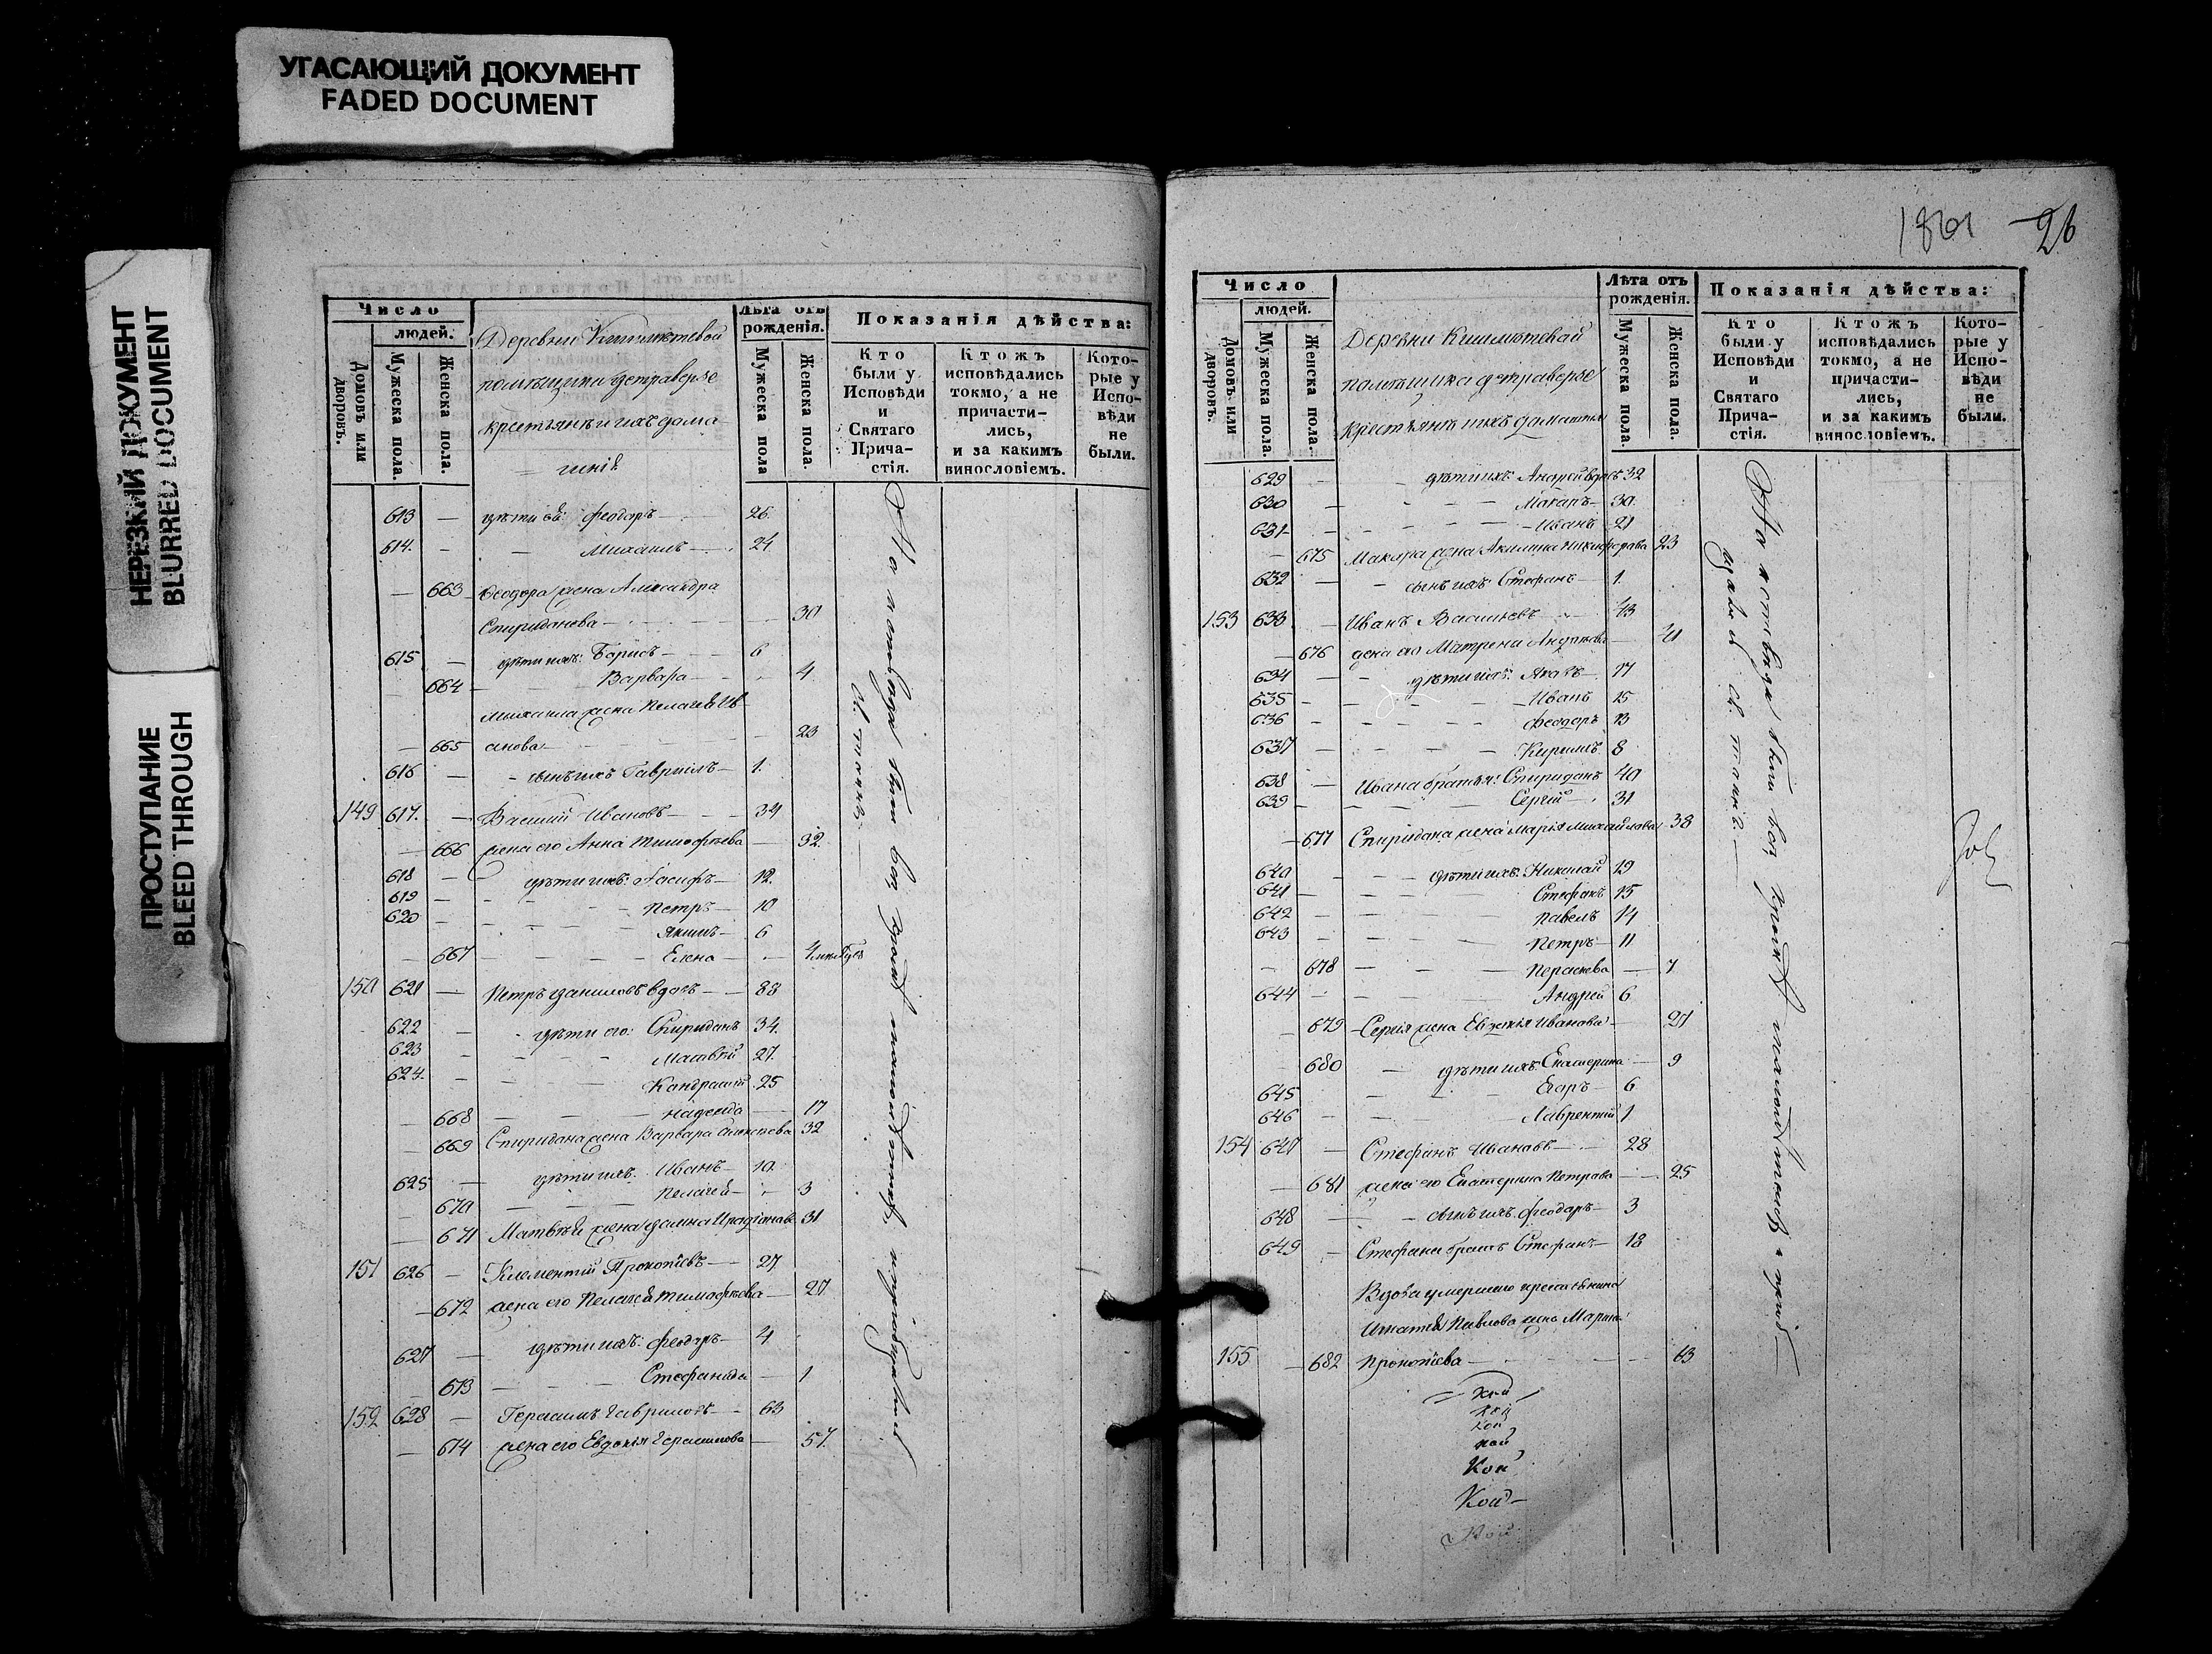 УГАСАЮЩИЙ ДОКУМЕНТ
FADED DOCUMENT
НЕРЕЗКИЙ ДОКУМЕНТ
BLURRED DOCUMENT
ПРОСТУПАНИЕ
BLEED THROUGH
Число
людей.
Домовъ или дворовъ.
Мужеска пола.
Женска пола.
Деревни
крестьянъ и ихъ дома
шніе
Лѣта отъ рожденія.
Мужеска пола
Женска пола.
Показанія дѣйства:
Кто были у Исповѣди и Святаго Прича-стія.
Ктожъ исповѣдались токмо, а не причасти-лись, и за какимъ винословіемъ.
Кото-рые у Испо-вѣди не были.
613 — дѣти ея: Феодоръ — 26.
614. — Михаилъ — 24
— 663 Феодора жена Александра
Спиридонова — 30
615 — дѣти ихъ: Борисъ — 6
664 — Варвара — 4
Михаила жена Пелагея Ив
665 анова — 23
616 — сынъ ихъ Гавріилъ — 1.
149 617. — Василій Ивановъ — 34
— 666 жена его Анна Тимофѣева — 32.
618 — дѣти ихъ: Іосифъ — 12.
619 — Петръ — 10
620 — Якимъ — 6
— 667 — Елена —
150 621 — Петръ Даниловъ вдовъ — 88
622 — дѣти его: Спиридонъ 34.
623 — Матвѣй 27.
624. — Кондратій 25
668 — Надежда — 17
669 Спиридона жена Варвара Алексѣева 32
625 — дѣти ихъ: Иванъ — 10.
670 — Пелагея — 3
671 Матвѣя жена 31
151 626 — Климентій Прокопіевъ — 27
— 672 жена его Пелагея Тимофѣева — 27.
627 — дѣти ихъ: Феодоръ — 4
673 — Стефанида — 1
152 628 — Герасимъ Гавриловъ — 63
— 674 жена его Евдокія Герасимова — 57.
1801 26
Число
людей.
Домовъ или дворовъ.
Мужеска пола.
Женска пола.
Деревни
помѣщика
крестьянъ и ихъ домашніе
Лѣта отъ рожденія.
Мужеска пола.
Женска пола.
Показанія дѣйства:
Кто были у Исповѣди и Святаго Прича-стія.
Ктожъ исповѣдались токмо, а не причасти-лись, и за какимъ винословіемъ.
Кото-рые у Испо-вѣди не были.
629 — дѣти ихъ: Андрей вдовъ 32
630 — Макаръ — 30.
631 — Иванъ — 21
— 675 Макара жена Акилина Никифорова 23
632 — сынъ ихъ Стефанъ — 1.
153 633 — Иванъ Васильевъ — 43
— 676 жена его Матрена Андреева — 41
634 — дѣти ихъ: Яковъ — 17
635 — Иванъ 15
636 — Феодоръ 13
637 — Кирилъ 8
638 — Ивана братья: Спиридонъ 40
639 — Сергій — 31
— 677 Спиридона жена Марія Михайлова 38
640 — дѣти ихъ: Николай 19
641 — Стефанъ 15
642 — Павелъ 14
643 — Петръ — 11
— 678 — Парасковья — 7
644 — Андрей 6
— 679 Сергія жена Евдокія Иванова — 27
680 — дѣти ихъ: Екатерина — 9
645 — Егоръ — 6
646 — Лаврентій 1
154 647 — Стефанъ Ивановъ — 28
— 681 жена его Екатерина Петрова — 25
648 — сынъ ихъ Феодоръ — 3
649 — Стефана братъ Стефанъ — 18
Вдова умершаго крестьянина
Игнатія Павлова жена Марѳа
155 — 682 Прокопіева — 63